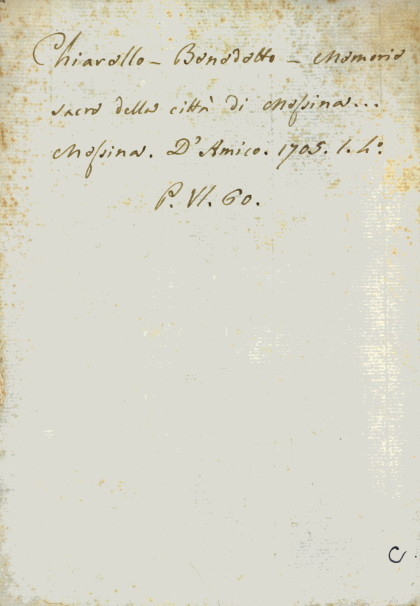 Chiarello - Benedetto - Memorie
sacre della città di Messina...
Messina. D'Amico. 1705. 1. 4º
P. VI. 60.
C.